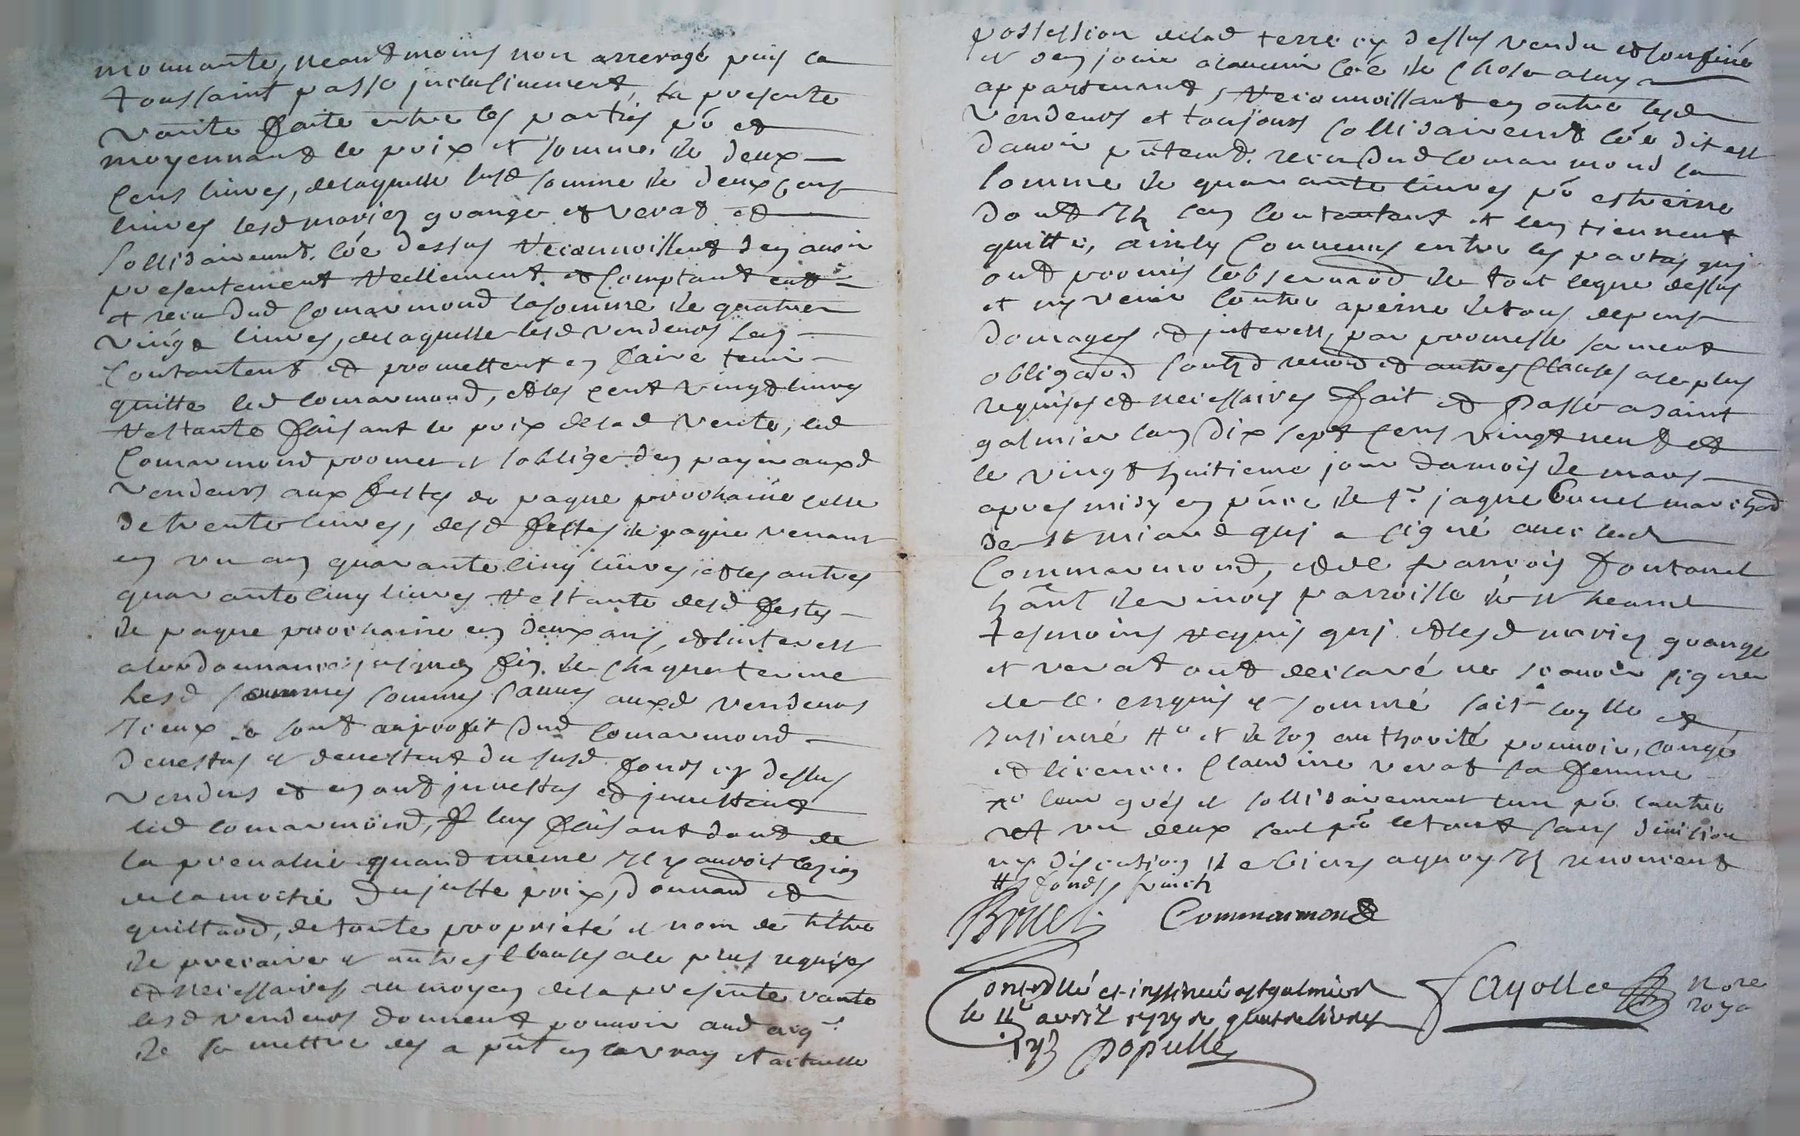 mouuante, neantmoins non arreragé puis la
toussaint passé jnclusiuement, la presente
vante faite entre les parties pō et
moyennant le prix et somme de deux
cens liures, de laquelle susd somme de deux cens
liures lesd mariez grangé et verat et
sollidairement. coē dessus reconnoissent den auoir
presentement reellement. et comptant
et receu dud comarmond la somme de quatre
vingt liures, de laquelle lesd vendeurs sen
contantent et promettent en faire tenir
quitte led comarmond, et les cent vingt liures
restante faisant le prix de lad vente, led
Comarmond promet et soblige den payer auxd
vendeurs aux festes de paque prochaine celle
de trente liures, desd festes de paque venant
en un an quarante cinq liures, et les autres
quarante cinq liures restante desd festes
de paque prochaine en deux ans, et linterest
a lordonnance jusques fin de chaque terme
lesd sommes sauues auxd vendeurs
Iceux sont au proffit dud comarmond
deuestus et deuestent du susd fonds cy dessus
vendus et en ont juuestus et juuestent
led comarmond, luy faisant dont de
la preualüe quand meme Il y auroit lezion
de la moitié du juste prix, donnant et
quittant, de toute proprieté et nom de tiltre
de precaire et autres clauses a ce plus requises
et necessaires au moyen de la presente vante
lesd vendeurs donnent pouuoir aud acqr
de se mettre des a pñt en la vray et actuelle
possession delad terre cy dessus vendu et confiné
et den jouir a lauenir coē de chose a luy
appartenant, reconnoissant en outre lesd
vendeurs et toujours sollidairement coē dit est
dauoir pñtemt. receu dud comarmond la
somme de quarante liures pō estreine
dont Ils sen contantent et len tiennent
quitte, ainsy conuenus entre les parties qui
ont promis lobseruaōn de tout ceque dessus
et ny venir contre a peine de tous depens
domages et juterest, par promesse serment
obligaōn et autres clauses a ce plus
requises et necessaires fait et passé a saint
galmier lan dix sept cens vingt neuf et
le vingt huitieme jour du mois de mars
apres midy en pñce de sr. jaque Bouel marchād
de st miard qui a signé auec led
Commarmond, et de françois fontanel
hānt de parroisse de st heand
tesmoins requis qui et lesd mariez grangé
et verat ont declaré ne scauoir signer
de ce enquis et sommé soit et
Insinué et de son authorité pouuoir, congé
et licence. Claudine verat sa femme
et sollidairement lun pō lautre
et un deux seul pō le tout sans diuision
ny discution de biens aquoy Ils renoncent
Bouel. Commarmond
Controllé et insinué a st galmier
le 11e avril 1729 R quatre liures
Populle
fayolle nore
roya